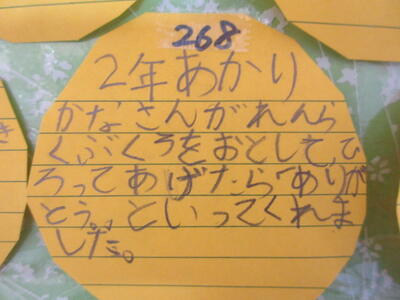 268
2年あかり
かなさんがれんら
くぶくろをおとして、ひ
ろってあげたら「ありが
とう。」といってくれま
した。
き